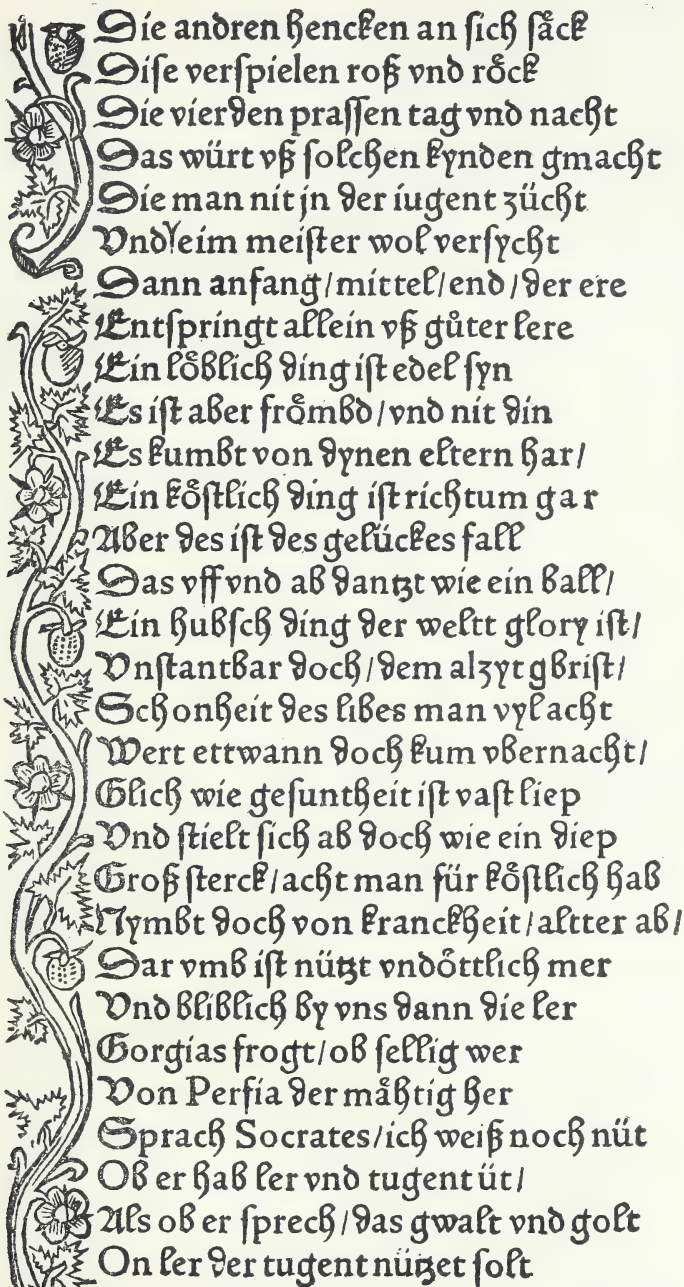 Die andren hencken an sich säck
Dise verspielen roß vnd röck
Die vierden prassen tag vnd nacht
Das würt vß solchen kynden gmacht
Die man nit jn der iugent zücht
Vnd eim meister wol versycht
Dann anfang/mittel/end/der ere
Entspringt allein vß guͦter lere
Ein loͤblich ding ist edel syn
Es ist aber froͤmbd/vnd nit din
Es kumbt von dynen eltern har/
Ein koͤstlich ding ist richtum gar
Aber des ist des gelückes fall
Das vff vnd ab dantzt wie ein ball/
Ein hubsch ding der weltt glory ist/
Vnstantbar doch/dem alzyt gbrist/
Schonheit des libes man vyl acht
Wert ettwann doch kum vbernacht/
Glich wie gesuntheit ist vast liep
Vnd stielt sich ab doch wie ein diep
Groß sterck/acht man für koͤstlich hab
Nymbt doch von kranckheit/altter ab/
Dar vmb ist nützt vndoͤttlich mer
Vnd bliblich by vns dann die ler
Gorgias frogt/ob sellig wer
Von Persia der maͤhtig her
Sprach Socrates/ich weiß noch nüt
Ob er hab ler vnd tugent üt/
Als ob er sprech/das gwalt vnd golt
On ler der tugent nützet solt